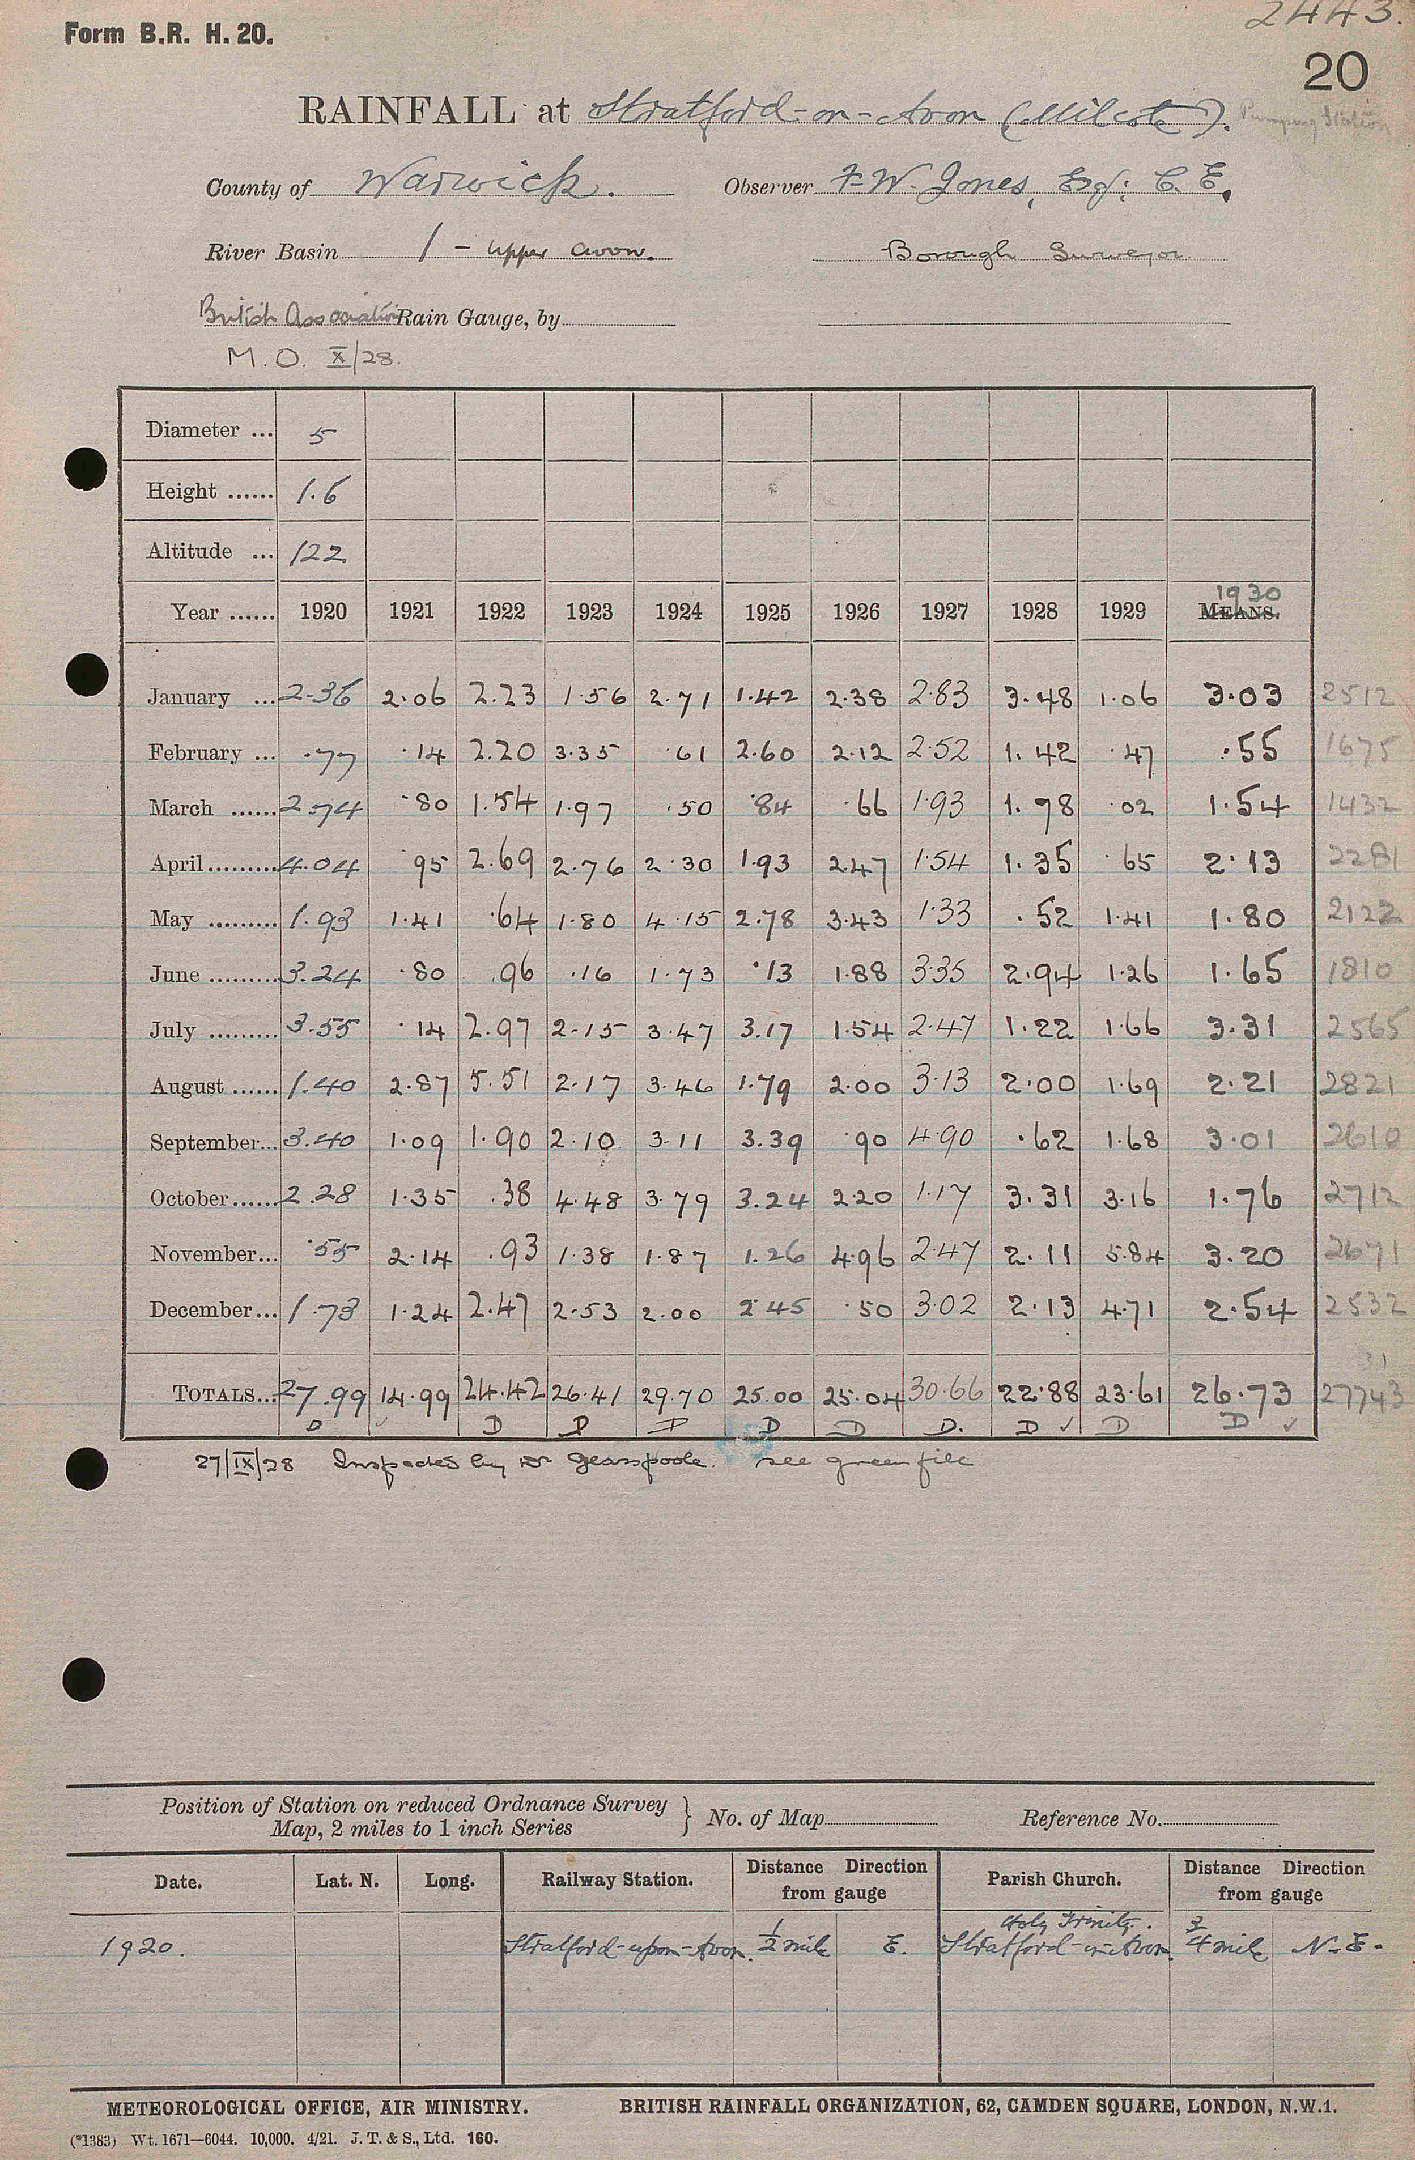 2443.
Form B.R. H. 20.
20
RAINFALL at Stratford-on-Avon (Milcote). Pumping Station
County of Warwick. Observer F. W. Jones, Esq: C. E.
River Basin 1 - upper avon. Borough Surveyor
British Association Rain Gauge, by
M. O. X/28.
Diameter ... 5
Height ...... 1.6
Altitude ... 122
1930
Year ...... 1920 1921 1922 1923 1924 1925 1926 1927 1928 1929 MEANS.
January ... 2.36 2.06 2.23 1.56 2.71 1.42 2.38 2.83 3.48 1.06 3.03 2512
February ... .77 .14 2.20 3.35 .61 2.60 2.12 2.52 1.42 .47 .55 1675
March ...... 2.74 .80 1.54 1.97 .50 .84 .66 1.93 1.78 .02 1.54 1432
April......... 4.04 .95 2.69 2.76 2.30 1.93 2.47 1.54 1.35 .65 2.13 2281
May ......... 1.93 1.41 .64 1.80 4.15 2.78 3.43 1.33 .52 1.41 1.80 2122
June ......... 3.24 .80 .96 .16 1.73 .13 1.88 3.35 2.94 1.26 1.65 1810
July ......... 3.55 .14 2.97 2.15 3.47 3.17 1.54 2.47 1.22 1.66 3.31 2565
August ...... 1.40 2.87 5.51 2.17 3.46 1.79 2.00 3.13 2.00 1.69 2.21 2821
September... 3.40 1.09 1.90 2.10 3.11 3.39 .90 4.90 .62 1.68 3.01 2610
October...... 2.28 1.35 .38 4.48 3.79 3.24 2.20 1.17 3.31 3.16 1.76 2712
November... .55 2.14 .93 1.38 1.87 1.26 4.96 2.47 2.11 5.84 3.20 2671
December... 1.73 1.24 2.47 2.53 2.00 2.45 .50 3.02 2.13 4.71 2.54 2532
31
TOTALS... 27.99 14.99 24.42 26.41 29.70 25.00 25.04 30.66 22.88 23.61 26.73 27743
D ✓ D D D D D D. D ✓ D D ✓
27/IX/28 Inspected by Dr Glasspoole. see green file
Position of Station on reduced Ordnance Survey
Map, 2 miles to 1 inch Series } No. of Map Reference No.
Date. Lat. N. Long. Railway Station. Distance Direction from gauge Parish Church. Distance Direction from gauge
Holy Trinity.
1920. Stratford-upon-Avon. 1/2 mile E. Stratford-on-Avon. 3/4 mile N.E.
METEOROLOGICAL OFFICE, AIR MINISTRY. BRITISH RAINFALL ORGANIZATION, 62, CAMDEN SQUARE, LONDON, N.W.1.
(*1383) Wt. 1671—6044. 10,000. 4/21. J. T. & S., Ltd. 160.